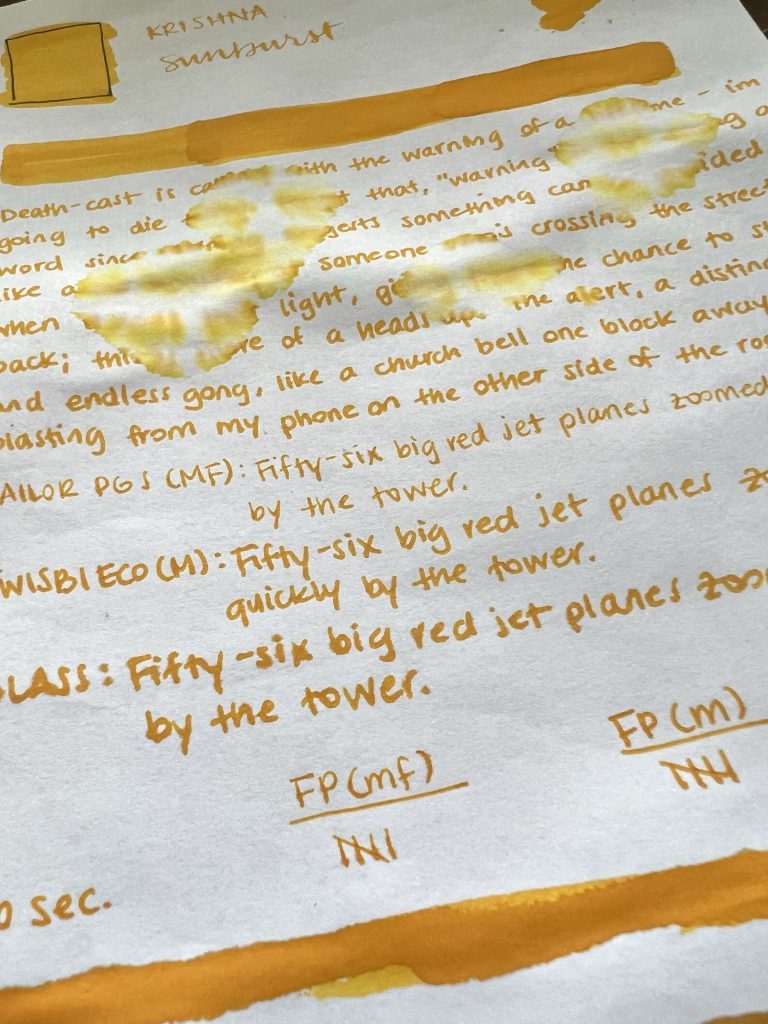 KRISHNA
Sunburst
Death-cast is with the warning of a me - im
going to die that, "warning" g a
word since gests something can ided
like a someone is crossing the street
when light, gi the chance to st
back; this re of a heads up. The alert, a distinc
and endless gong, like a church bell one block away
blasting from my phone on the other side of the roo
AILOR PGS (MF): Fifty-six big red jet planes zoomed
by the tower.
WISBI ECO (M): Fifty-six big red jet planes zo
quickly by the tower.
LASS: Fifty-six big red jet planes zoo
by the tower.
FP (m)
FP (mf)
0 sec.